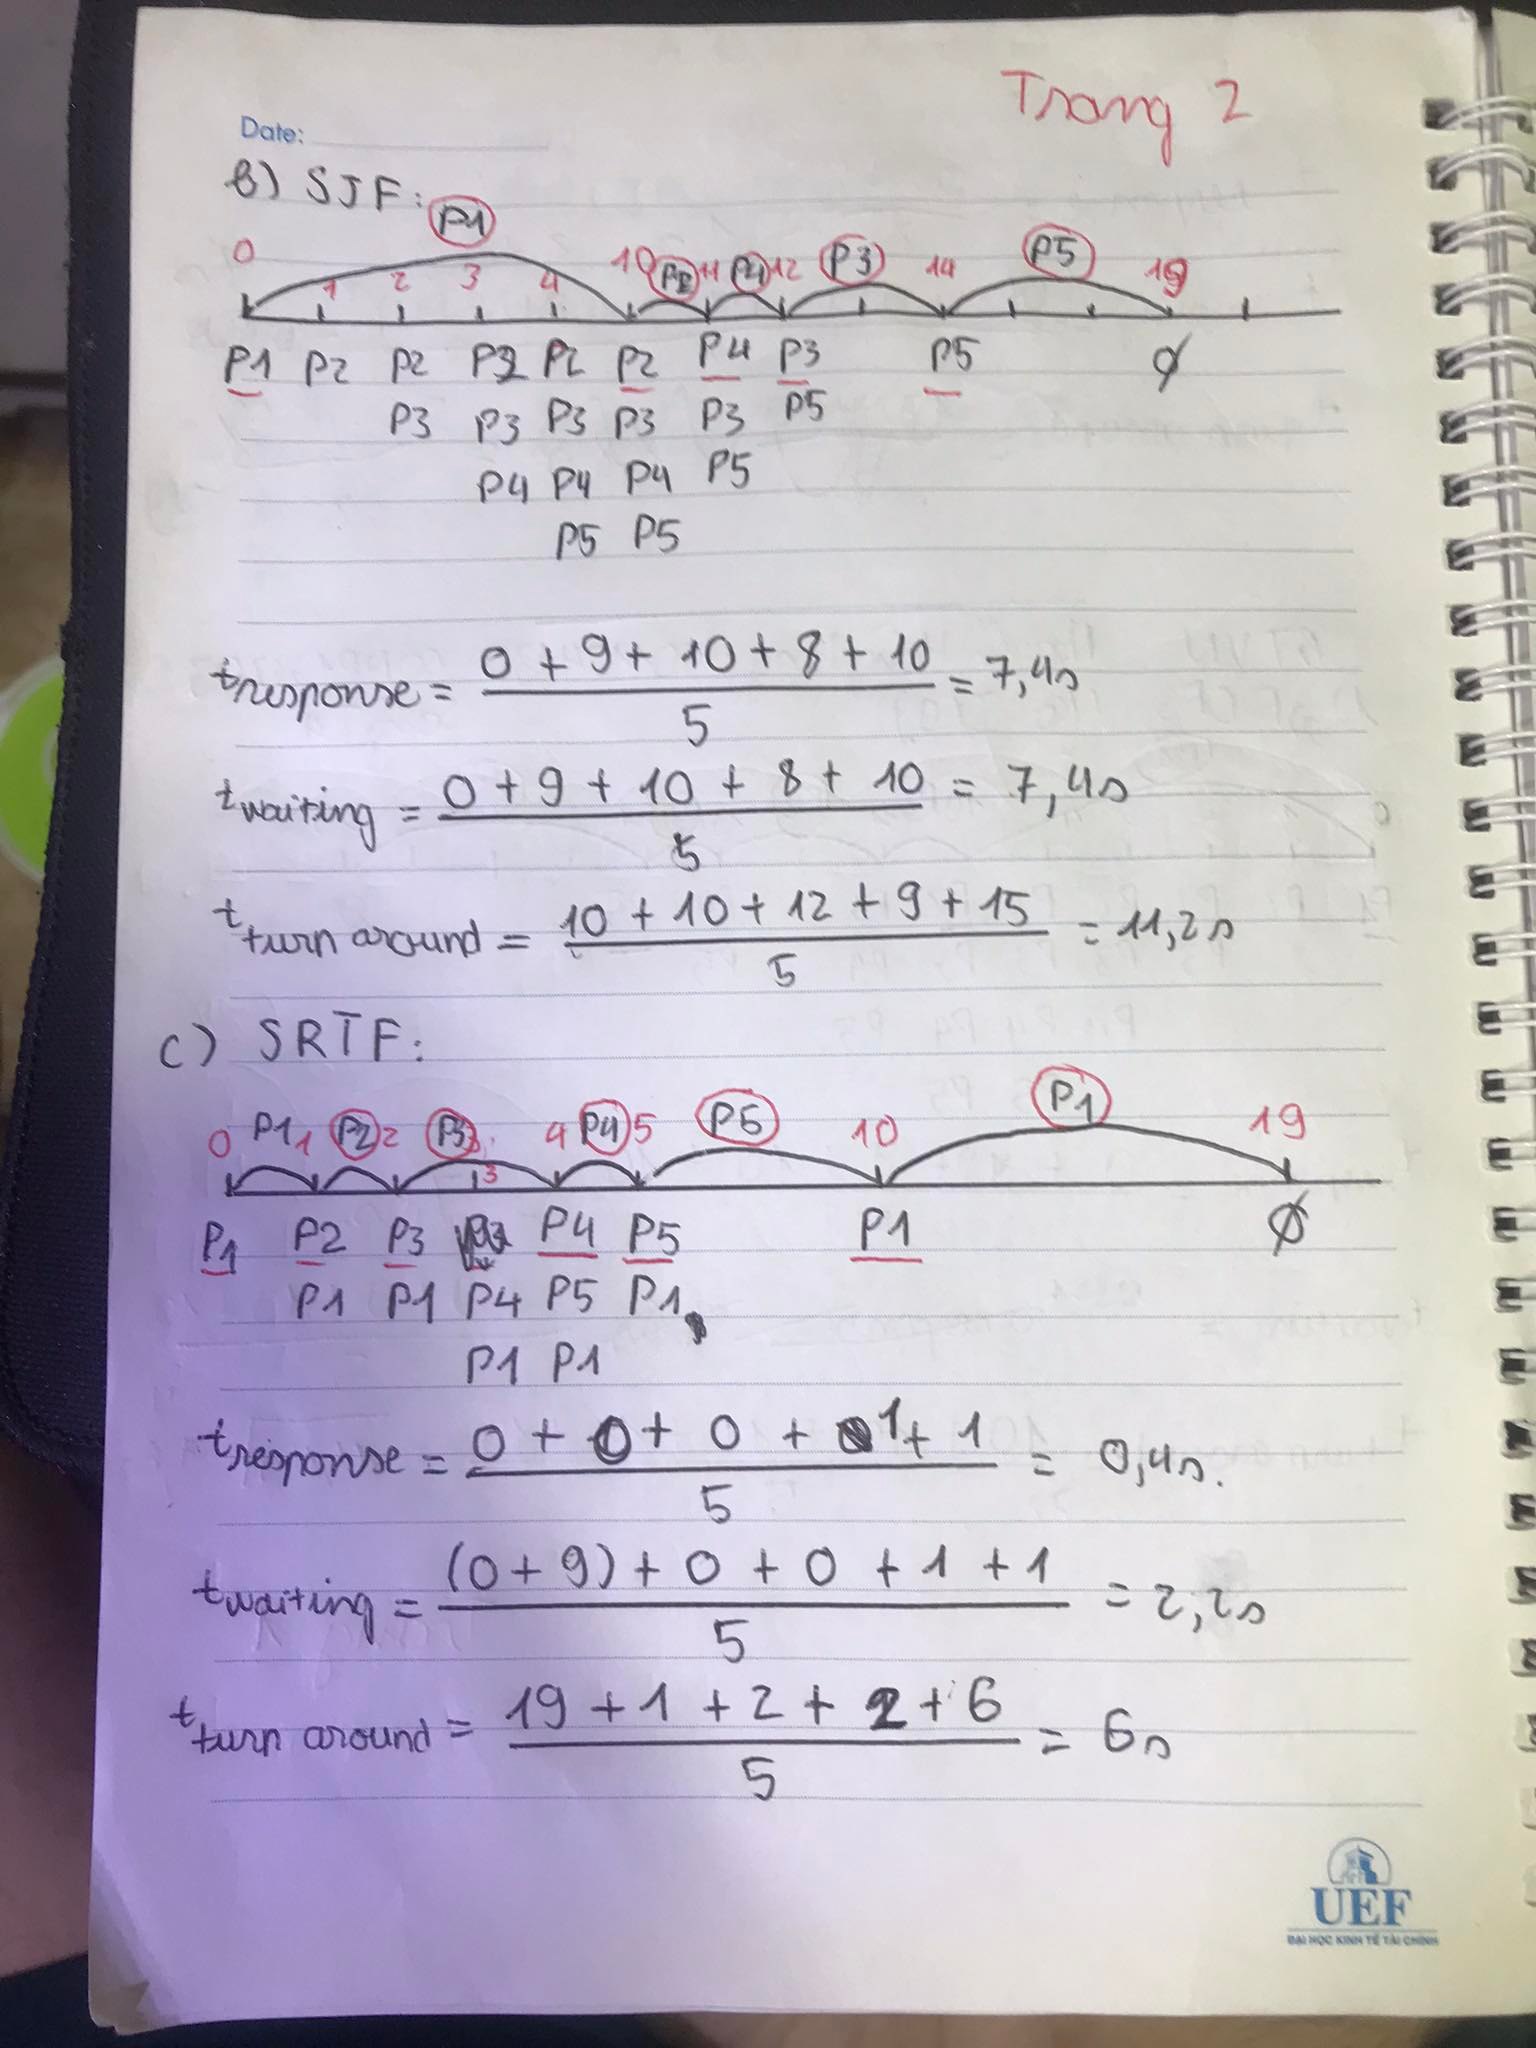 Trang 2
Date:
b) SJF:
P1 P2 P4 P3 P5
0 1 2 3 4 10 11 12 14 19
P1 P2 P2 P2 P2 P2 P4 P3 P5 ∅
P3 P3 P3 P3 P3 P5
P4 P4 P4 P5
P5 P5
t response = (0 + 9 + 10 + 8 + 10) / 5 = 7,4s
t waiting = (0 + 9 + 10 + 8 + 10) / 5 = 7,4s
t turn around = (10 + 10 + 12 + 9 + 15) / 5 = 11,2s
c) SRTF:
0 P1 1 P2 2 P3 3 4 P4 5 P5 10 P1 19
P1 P2 P3 P4 P5 P1 ∅
P1 P1 P4 P5 P1
P1 P1
t response = (0 + 0 + 0 + 1 + 1) / 5 = 0,4s.
t waiting = ((0 + 9) + 0 + 0 + 1 + 1) / 5 = 2,2s
t turn around = (19 + 1 + 2 + 2 + 6) / 5 = 6s
UEF
ĐẠI HỌC KINH TẾ TÀI CHÍNH